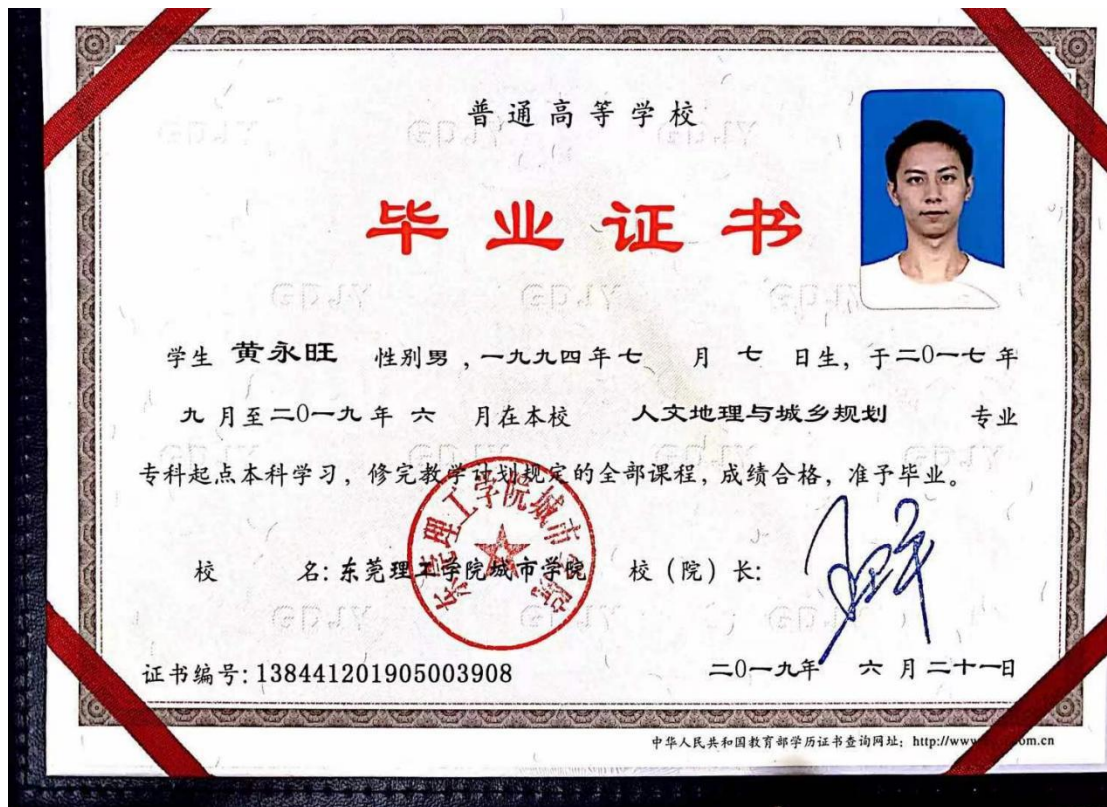 普通高等学校
毕业证书
学生 黄永旺 性别男 ,一九九四年七 月 七 日生,于二0一七年
九 月至二0一九年 六 月在本校 人文地理与城乡规划 专业
专科起点本科学习,修完教学计划规定的全部课程,成绩合格,准予毕业。
东莞理工学院城市学院
校 名:东莞理工学院城市学院 校(院)长:
证书编号:138441201905003908 二0一九年 六 月二十一日
中华人民共和国教育部学历证书查询网址:http://www om.cn